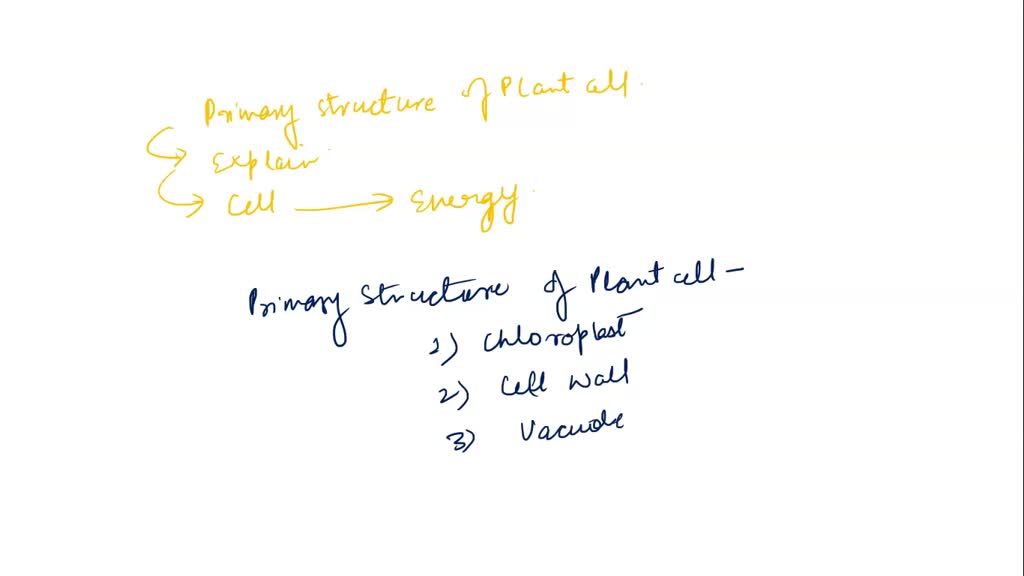 Primary structure of Plant cell.
Explain
Cell → Energy.
Primary structure of Plant cell -
1) Chloroplast
2) Cell wall
3) Vacuole